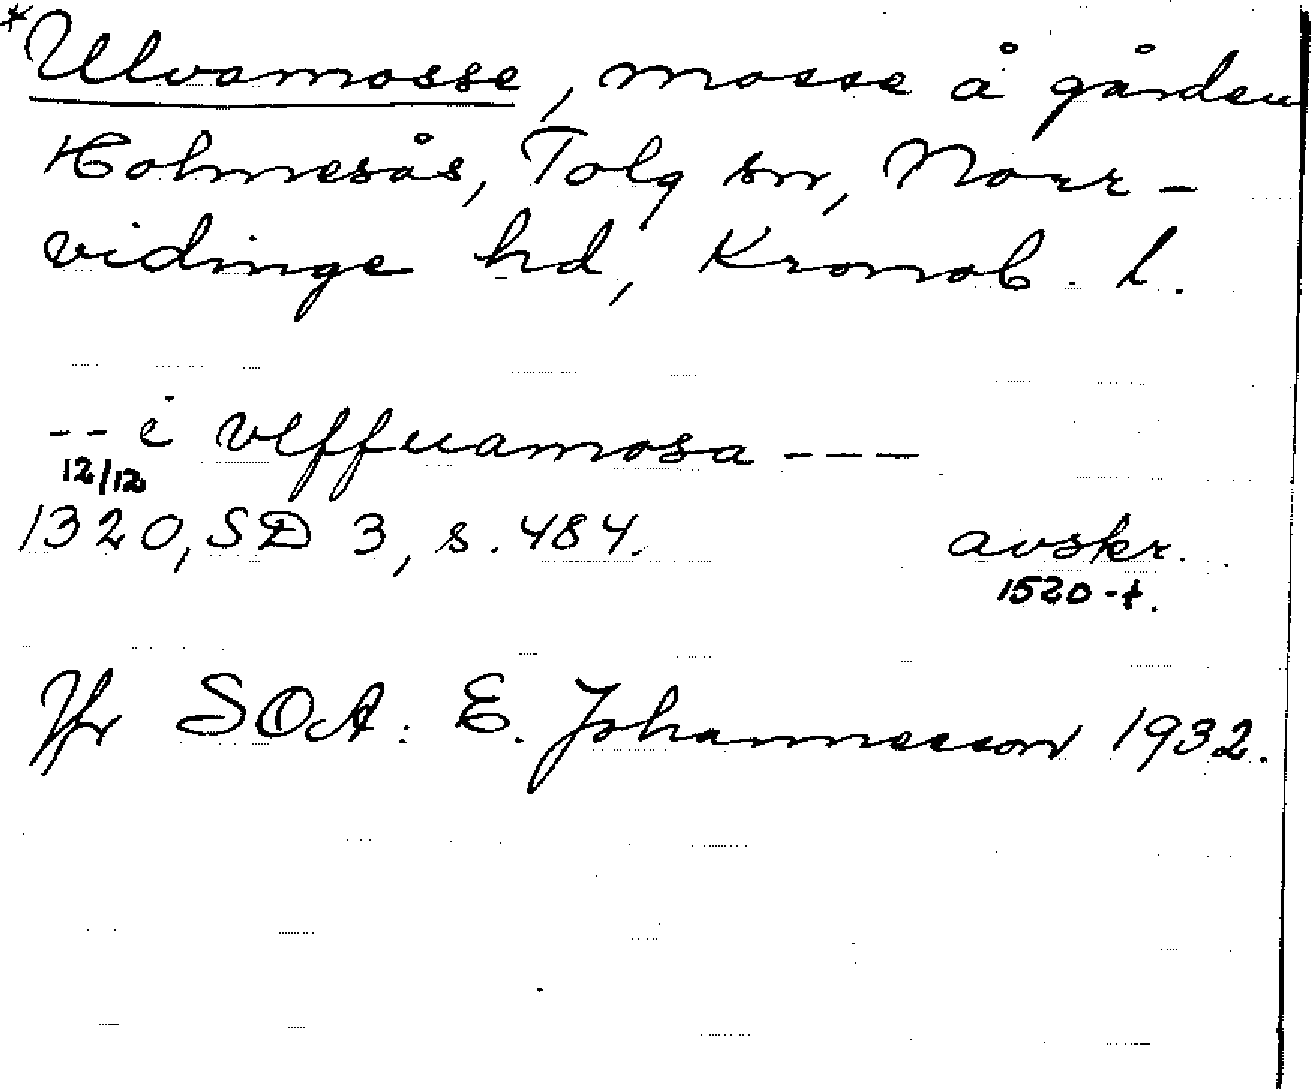 *Ulvamosse, mosse å gården
Holmesås, Tolg sn, Norr-
vidinge hd, Kronob. l.
-- i vlffuamosa ---
12/12
1320, SD 3, s. 484. avskr.
1520-t.
Jfr SOA. E. Johannesson 1932.